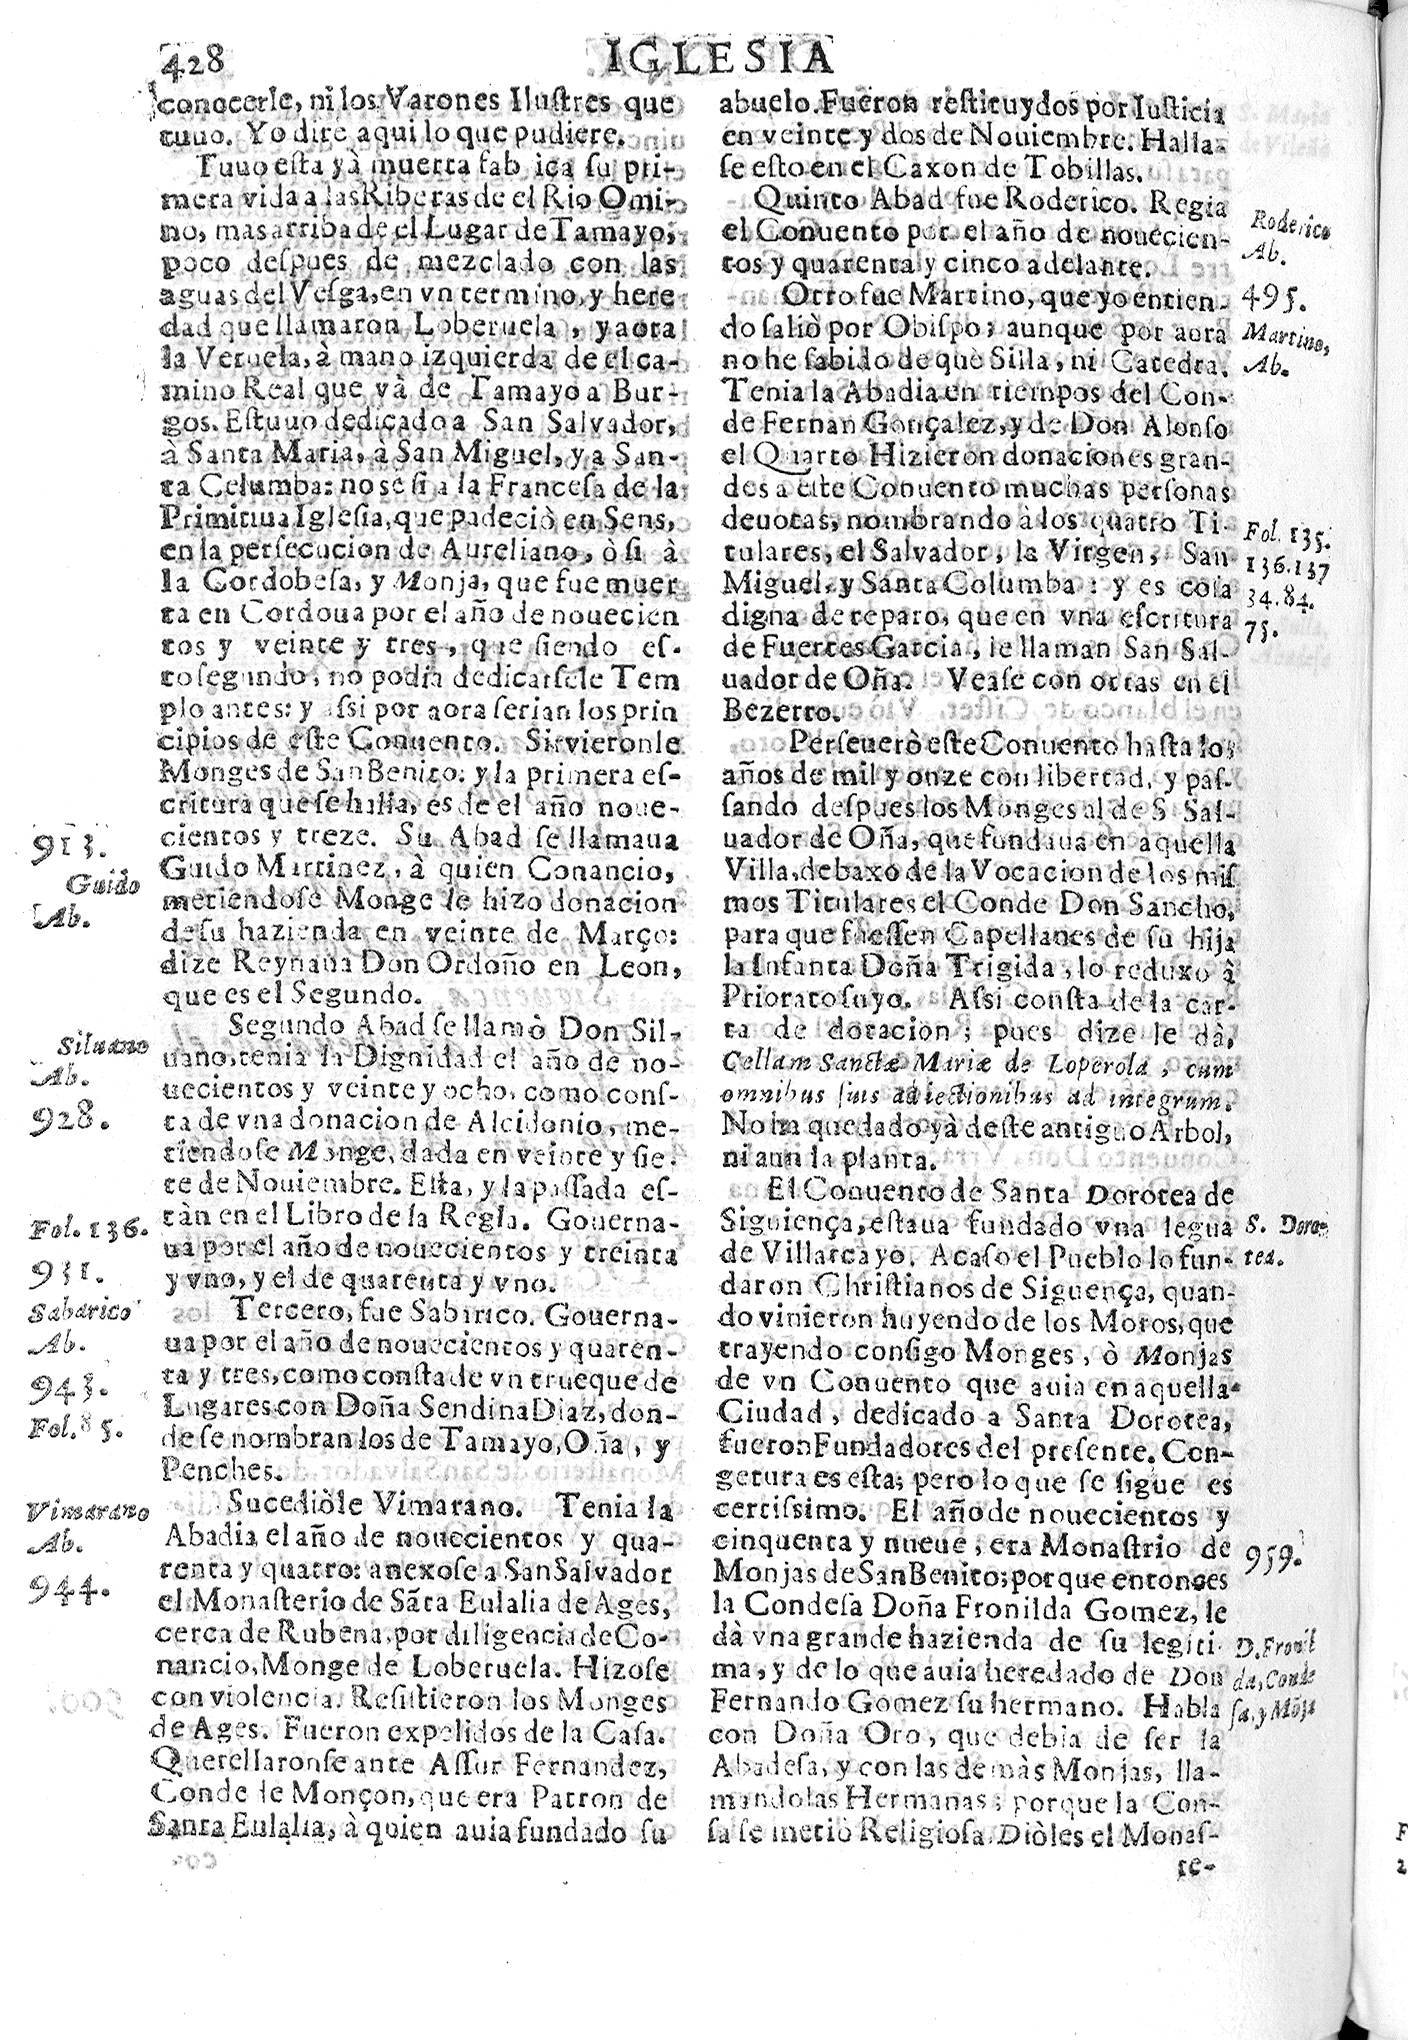 428
IGLESIA
conocerle, ni los Varones Ilustres que
tuuo. Yo dire aqui lo que pudiere.
Tuuo esta yà muerta fab ica su pri-
mera vida a las Riberas de el Rio Omi-
no, mas arriba de el Lugar de Tamayo,
poco despues de mezclado con las
aguas del Vesga, en vn termino, y here
dad que llamaron Loberuela, y aora
la Veruela, à mano izquierda de el ca-
mino Real que và de Tamayo a Bur-
gos. Estuuo dedicado a San Salvador,
à Santa Maria, à San Miguel, y a San-
ta Celumba: no se si a la Francesa de la
Primitiua Iglesia, que padeciò en Sens,
en la persecucion de Aureliano, ò si à
la Cordobesa, y Monja, que fue muer
ta en Cordoua por el año de nouecien
tos y veinte y tres, que siendo es-
to segundo, no podia dedicarsele Tem
plo antes: y assi por aora serian los prin
cipios de este Conuento. Sirvieronle
Monges de San Benito: y la primera es-
critura que se halla, es de el año noue-
cientos y treze. Su Abad se llamaua
Guido Martinez, à quien Conancio,
metiendose Monge le hizo donacion
de su hazienda en veinte de Março:
dize Reynaua Don Ordoño en Leon,
que es el Segundo.
Segundo Abad se llamò Don Sil-
uano, tenia la Dignidad el año de no-
uecientos y veinte y ocho, como cons-
ta de vna donacion de Alcidonio, me-
tiendose Monge, dada en veinte y sie-
te de Nouiembre. Esta, y la passada es-
tàn en el Libro de la Regla. Gouerna-
ua por el año de nouecientos y treinta
y vno, y el de quarenta y vno.
Tercero, fue Sabirico. Gouerna-
ua por el año de nouecientos y quaren-
ta y tres, como consta de vn trueque de
Lugares con Doña Sendina Diaz, don-
de se nombran los de Tamayo, Oña, y
Penches.
Sucediòle Vimarano. Tenia la
Abadia el año de nouecientos y qua-
renta y quatro: anexose a San Salvador
el Monasterio de Sãta Eulalia de Ages,
cerca de Rubena, por diligencia de Co-
nancio, Monge de Loberuela. Hizose
con violencia. Resistieron los Monges
de Ages. Fueron expelidos de la Casa.
Querellaronse ante Assur Fernandez,
Conde de Monçon, que era Patron de
Santa Eulalia, à quien auia fundado su
913.
Guido
Ab.
Siluano
Ab.
928.
Fol. 136.
931.
Sabarico
Ab.
943.
Fol. 85.
Vimarano
Ab.
944.
abuelo. Fueron restituydos por Iusticia
en veinte y dos de Nouiembre. Halla-
se esto en el Caxon de Tobillas.
Quinto Abad fue Roderico. Regia
el Conuento por el año de nouecien-
tos y quarenta y cinco adelante.
Otro fue Martino, que yo entien-
do saliò por Obispo; aunque por aora
no he sabido de què Silla, ni Catedra.
Tenia la Abadia en tiempos del Con-
de Fernan Gonçalez, y de Don Alonso
el Quarto Hizieron donaciones gran-
des a este Conuento muchas personas
deuotas, nombrando à los quatro Ti-
tulares, el Salvador, la Virgen, San
Miguel, y Santa Columba: y es cosa
digna de reparo, que en vna escritura
de Fuertes Garcia, le llaman San Sal-
uador de Oña. Vease con otras en el
Bezerro.
Perseuerò este Conuento hasta los
años de mil y onze con libertad, y pas-
sando despues los Monges al de S Sal-
uador de Oña, que fundaua en aquella
Villa, debaxo de la Vocacion de los mis
mos Titulares el Conde Don Sancho,
para que fuessen Capellanes de su hija
la Infanta Doña Trigida, lo reduxo à
Priorato suyo. Assi consta de la car-
ta de dotacion; pues dize le dà,
Cellam Sanctæ Mariæ de Loperola, cum
omnibus suis adiectionibus ad integrum.
No ha quedado yà deste antiguo Arbol,
ni aun la planta.
El Conuento de Santa Dorotea de
Siguiença, estaua fundado vna legua
de Villarcayo. Acaso el Pueblo lo fun-
daron Christianos de Siguença, quan-
do vinieron huyendo de los Moros, que
trayendo consigo Monges, ò Monjas
de vn Conuento que auia en aquella
Ciudad, dedicado a Santa Dorotea,
fueron Fundadores del presente. Con-
getura es esta; pero lo que se sigue es
certissimo. El año de nouecientos y
cinquenta y nueue, era Monastrio de
Monjas de San Benito; porque entonces
la Condesa Doña Fronilda Gomez, le
dà vna grande hazienda de su legiti-
ma, y de lo que auia heredado de Don
Fernando Gomez su hermano. Habla
con Doña Oro, que debia de ser la
Abadesa, y con las demàs Monjas, lla-
mandolas Hermanas; porque la Con-
sa se metiò Religiosa. Diòles el Monas-
te-
Roderico
Ab.
495.
Martino,
Ab.
Fol. 135.
136.137
34.84.
75.
S. Doro-
tea.
959.
D. Fronil
da, Conde
sa, y Mõja